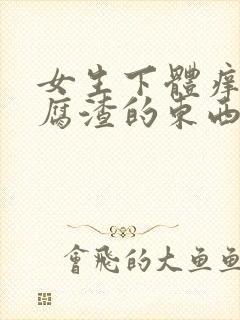 女生下體癢
腐渣的東西
會飛的大魚魚